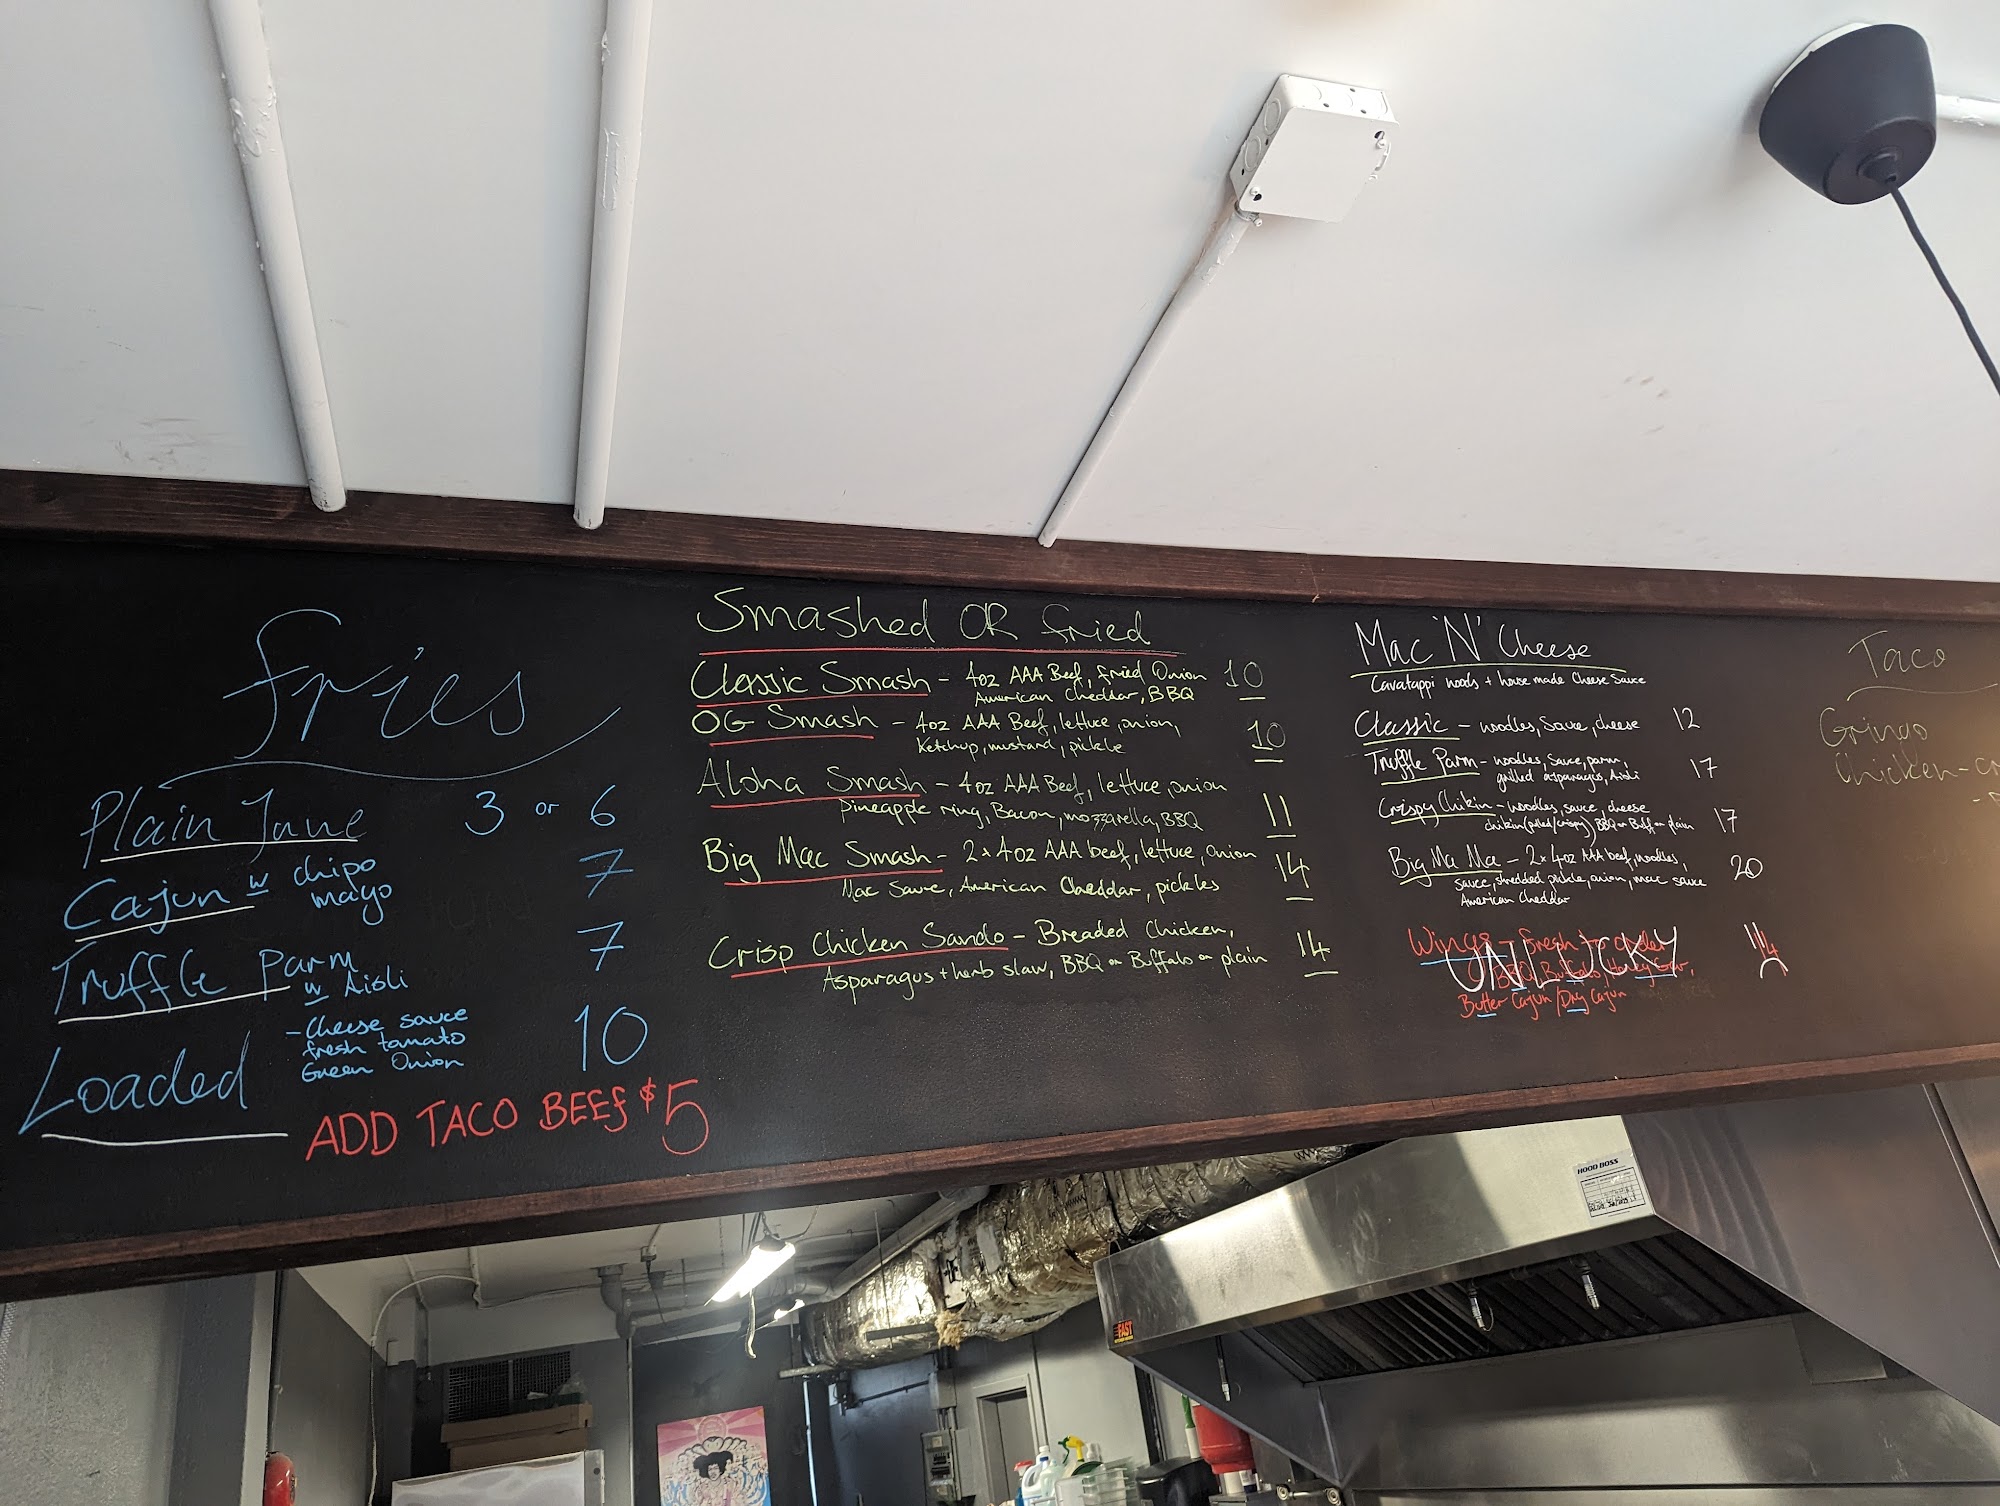 fries
Plain Jane 3 or 6
Cajun w chipo
mayo 7
Truffle Parm
w Aioli 7
Loaded
- Cheese sauce
fresh tomato
Green Onion 10
ADD TACO BEEf $5
Smashed OR fried
Classic Smash - 4oz AAA Beef, fried Onion 10
American Cheddar, BBQ
OG Smash - 4oz AAA Beef, lettuce, onion, 10
Ketchup, mustard, pickle
Aloha Smash - 4oz AAA Beef, lettuce, onion
Pineapple ring, Bacon, mozzarella, BBQ 11
Big Mac Smash - 2x4oz AAA beef, lettuce, onion 14
Mac Sauce, American Cheddar, pickles
Crisp Chicken Sando - Breaded Chicken, 14
Asparagus + herb slaw, BBQ or Buffalo or plain
Mac 'N' Cheese
Cavatappi noods + house made Cheese Sauce
Classic - noodles, Sauce, cheese 12
Truffle Parm - noodles, Sauce, parm, 17
grilled asparagus, Aioli
Crispy Chikin - noodles, sauce, cheese 17
chikin (pulled/crispy) BBQ or Buff or plain
Big Ma Mac - 2x4oz AAA beef, noodles, 20
sauce, shredded pickle, onion, mac sauce
American Cheddar
Wings - Fresh to order
UNLUCKY
BBQ, Buffalo, Honey Gar,
Butter Cajun/Dry Cajun
Taco
Gringo
Chicken - c
HOOD BOSS
FAST